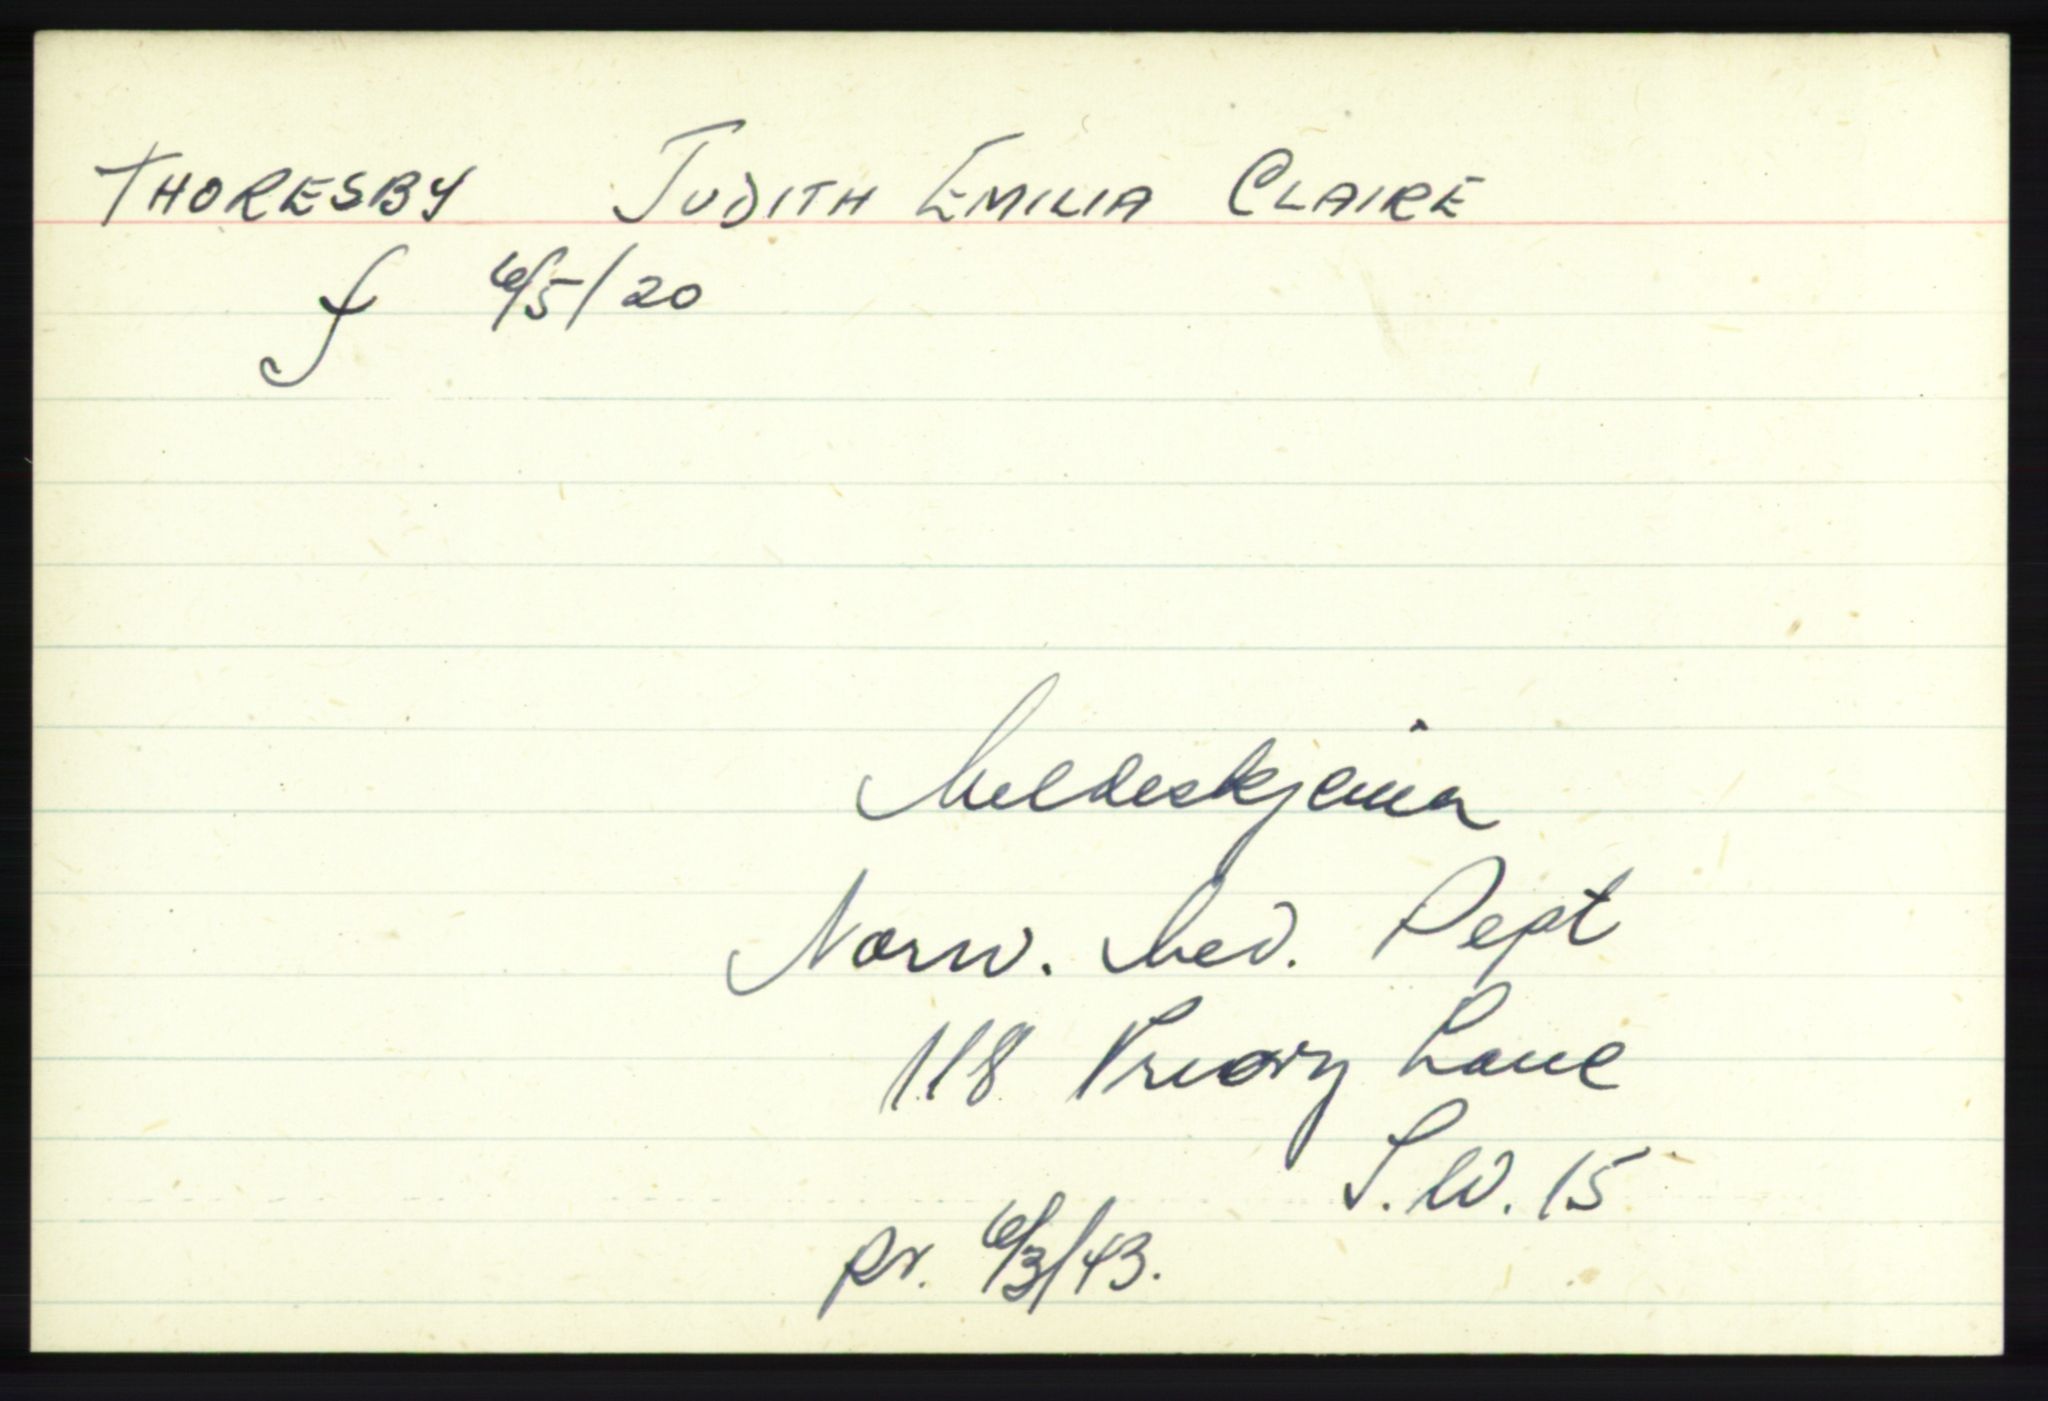 THORESBY JUDITH EMILIA CLAIRE
f 6/5/20
Meldeskjema
Norw. Med. Dept
118 Priory Lane
S.W. 15
pr. 6/3/43.